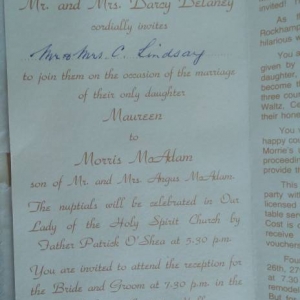 Mr. and Mrs. Darcy Delaney
cordially invites
Mr & Mrs. C. Lindsay
to join them on the occasion of the marriage
of their only daughter
Maureen
to
Morris McAdam
son of Mr. and Mrs Angus McAdam.
The nuptials will be celebrated in Our
Lady of the Holy Spirit Church by
Father Patrick O'Shea at 5.30 p.m.
You are invited to attend the reception for
the Bride and Groom at 7.30 p.m. in the
invited!
As
Rockhams
hilarious w
You a
given by
daughter
become t
three cou
Waltz. Co
their hone
You
happy cou
Morrie's
proceedin
provide th
This
party with
licensed
table serv
Cost is
receive
vouchers
Fou
26th, 27
at 7.30
remodel
But all